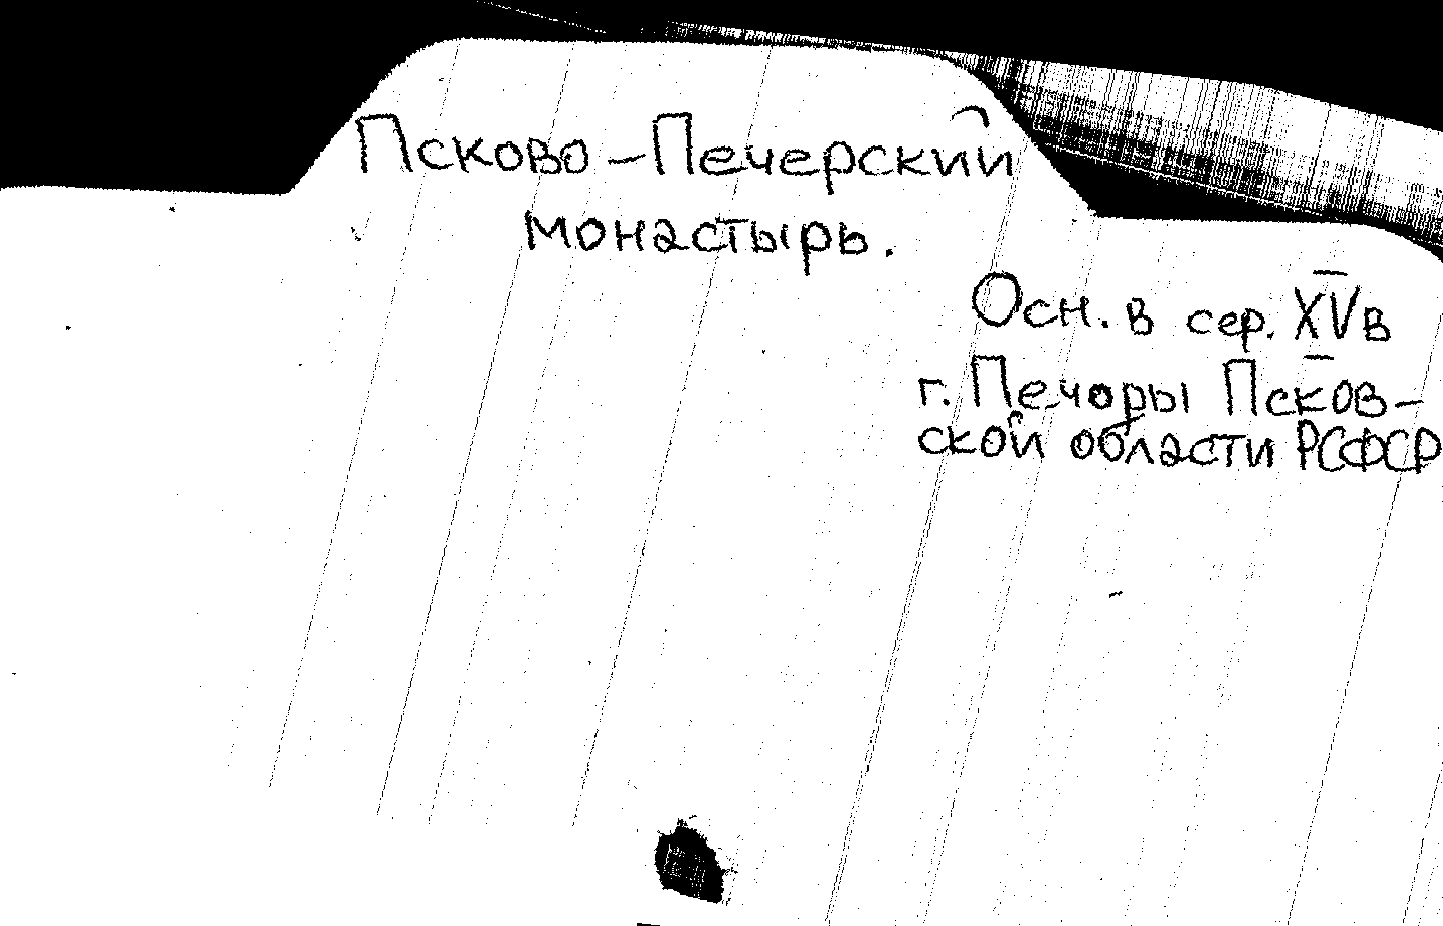 Псково-Печерский
монастырь.
Осн. в сер. XV в
г. Печоры Псков-
ской области РСФСР